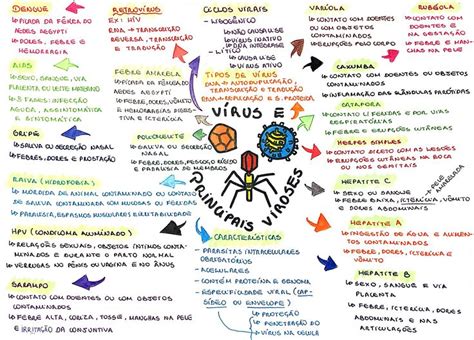 DENGUE
→ PICADA DA FÊMEA DO AEDES AEGYPTI
→ DORES, FEBRE E HEMORRAGIA
RETROVÍRUS
EX: HIV
RNA → TRANSCRIÇÃO REVERSA, TRANSCRIÇÃO E TRADUÇÃO
CICLOS VIRAIS
- LISOGÊNICO
↳ NÃO CAUSA LISE
↳ VÍRUS INATIVO
↳ DNA INTEGRASE
- LÍTICO
↳ CAUSA LISE
↳ VÍRUS ATIVO
VARÍOLA
→ CONTATO COM DOENTES OU COM OBJETOS CONTAMINADOS
→ ERUPÇÕES CUTÂNEAS
RUBÉOLA
→ CONTATO COM DOENTES
→ FEBRE E MANCHAS NA PELE
AIDS
→ SEXO, SANGUE, VIA PLACENTA OU LEITE MATERNO
→ 3 FASES: INFECÇÃO AGUDA, ASSINTOMÁTICA E SINTOMÁTICA
FEBRE AMARELA
→ PICADA DA FÊMEA DO AEDES AEGYPTI
→ FEBRE, DORES, VÔMITO E HEMORRAGIAS E ICTERÍCIA
TIPOS DE VÍRUS
DNA → AUTODUPLICAÇÃO, TRANSCRIÇÃO E TRADUÇÃO
RNA → DUPLICAÇÃO E S. PROTEICA
CAXUMBA
→ CONTATO COM DOENTES OU OBJETOS CONTAMINADOS
→ INFLAMAÇÃO DAS GLÂNDULAS PARÓTIDAS
CATAPORA
→ CONTATO C/ FERIDAS E POR VIAS RESPIRATÓRIAS
→ FEBRE E ERUPÇÕES CUTÂNEAS
GRIPE
→ SALIVA OU SECREÇÃO NASAL
→ FEBRE, DORES, E PROSTAÇÃO
POLIOMIELITE
→ SALIVA OU SECREÇÃO NASAL
→ FEBRE, DORES, PESCOÇO RÍGIDO E PARALISIA DE MEMBROS
VÍRUS E PRINCIPAIS VIROSES
HERPES SIMPLES
→ CONTATO DIRETO COM AS LESÕES
→ ERUPÇÕES CUTÂNEAS NA BOCA OU NOS GENITAIS
RAIVA (HIDROFOBIA)
→ MORDIDA DE ANIMAL CONTAMINADO OU CONTATO DE SALIVA CONTAMINADA COM MUCOSAS OU FERIDAS
→ PARALISIA, ESPASMOS MUSCULARES E IRRITABILIDADE
HEPATITE C
→ SEXO OU SANGUE
→ FEBRE BAIXA, ICTERÍCIA, VÔMITO E DORES ABDOMINAIS
→ PELE AMARELADA
HPV (CONDILOMA ACUMINADO)
→ RELAÇÕES SEXUAIS, OBJETOS ÍNTIMOS CONTAMINADOS E DURANTE O PARTO NORMAL
→ VERRUGAS NO PÊNIS OU VAGINA E NO ÂNUS
CARACTERÍSTICAS
- PARASITAS INTRACELULARES OBRIGATÓRIOS
- ACELULARES
- CONTÉM PROTEÍNA E GENOMA
- ESPECIFICIDADE VIRAL (CAPSÍDEO OU ENVELOPE)
↳ PROTEÇÃO
↳ PENETRAÇÃO DO VÍRUS NA CÉLULA
HEPATITE A
→ INGESTÃO DE ÁGUA E ALIMENTOS CONTAMINADOS
→ FEBRE, DORES, ICTERÍCIA E VÔMITO
SARAMPO
→ CONTATO COM DOENTES OU COM OBJETOS CONTAMINADOS
→ FEBRE ALTA, CORIZA, TOSSE, MANCHAS NA PELE E IRRITAÇÃO DA CONJUNTIVA
HEPATITE B
→ SEXO, SANGUE E VIA PLACENTA
→ FEBRE, ICTERÍCIA, DORES ABDOMINAIS E NAS ARTICULAÇÕES